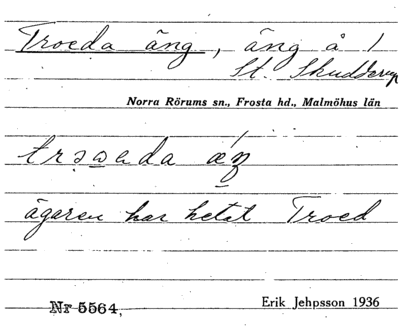 Troeda äng, äng å 1
St. Skuddarup
Norra Rörums sn., Frosta hd., Malmöhus län
ägaren har hetat Troed
Nr 5564,
Erik Jehpsson 1936